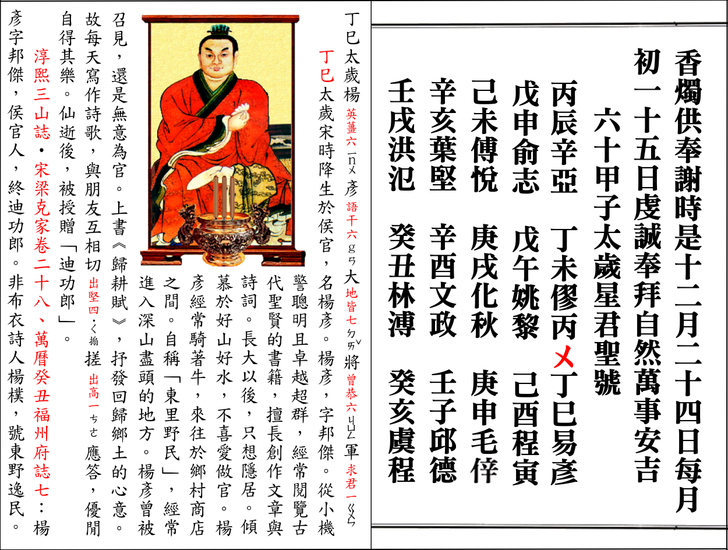 香燭供奉謝時是十二月二十四日每月
初一十五日虔誠奉拜自然萬事安吉
六十甲子太歲星君聖號
丙辰辛亞 丁未僇丙ㄨ丁巳易彥
戊申俞志 戊午姚黎 己酉程寅
己未傅悅 庚戌化秋 庚申毛倖
辛亥葉堅 辛酉文政 壬子邱德
壬戌洪氾 癸丑林溥 癸亥虞程
丁巳太歲楊英薑六彥語干六大地皆七將曾恭六軍求君一
丁巳太歲宋時降生於侯官,名楊彥。楊彥,字邦傑。從小機
警聰明且卓越超群,經常閱覽古
代聖賢的書籍,擅長創作文章與
詩詞。長大以後,只想隱居。傾
慕於好山好水,不喜愛做官。楊
彥經常騎著牛,來往於鄉村商店
之間。自稱「東里野民」,經常
進入深山盡頭的地方。楊彥曾被
召見,還是無意為官。上書《歸耕賦》,抒發回歸鄉土的心意。
故每天寫作詩歌,與朋友互相切出堅四搓出高一應答,優閒
自得其樂。仙逝後,被授贈「迪功郎」。
淳熙三山誌・宋梁克家卷二十八、萬曆癸丑福州府誌七:楊
彥字邦傑,侯官人,終迪功郎。非布衣詩人楊樸,號東野逸民。